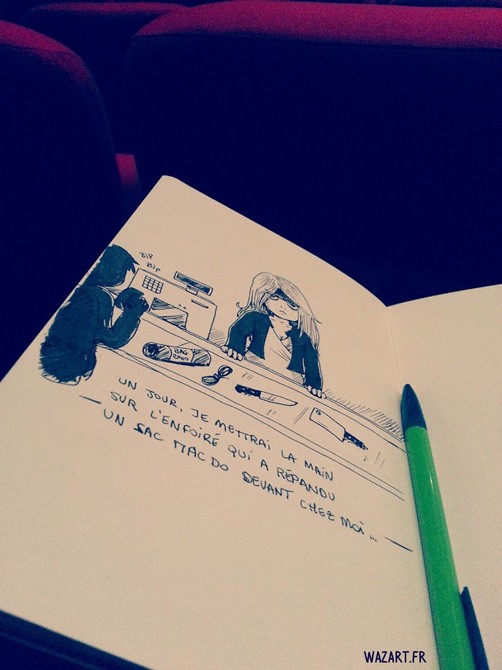 BIP
BIP
BAG
BAGS
UN JOUR, JE METTRAI LA MAIN
SUR L'ENFOIRÉ QUI A RÉPANDU
UN SAC MAC DO DEVANT CHEZ MOI...
WAZART.FR